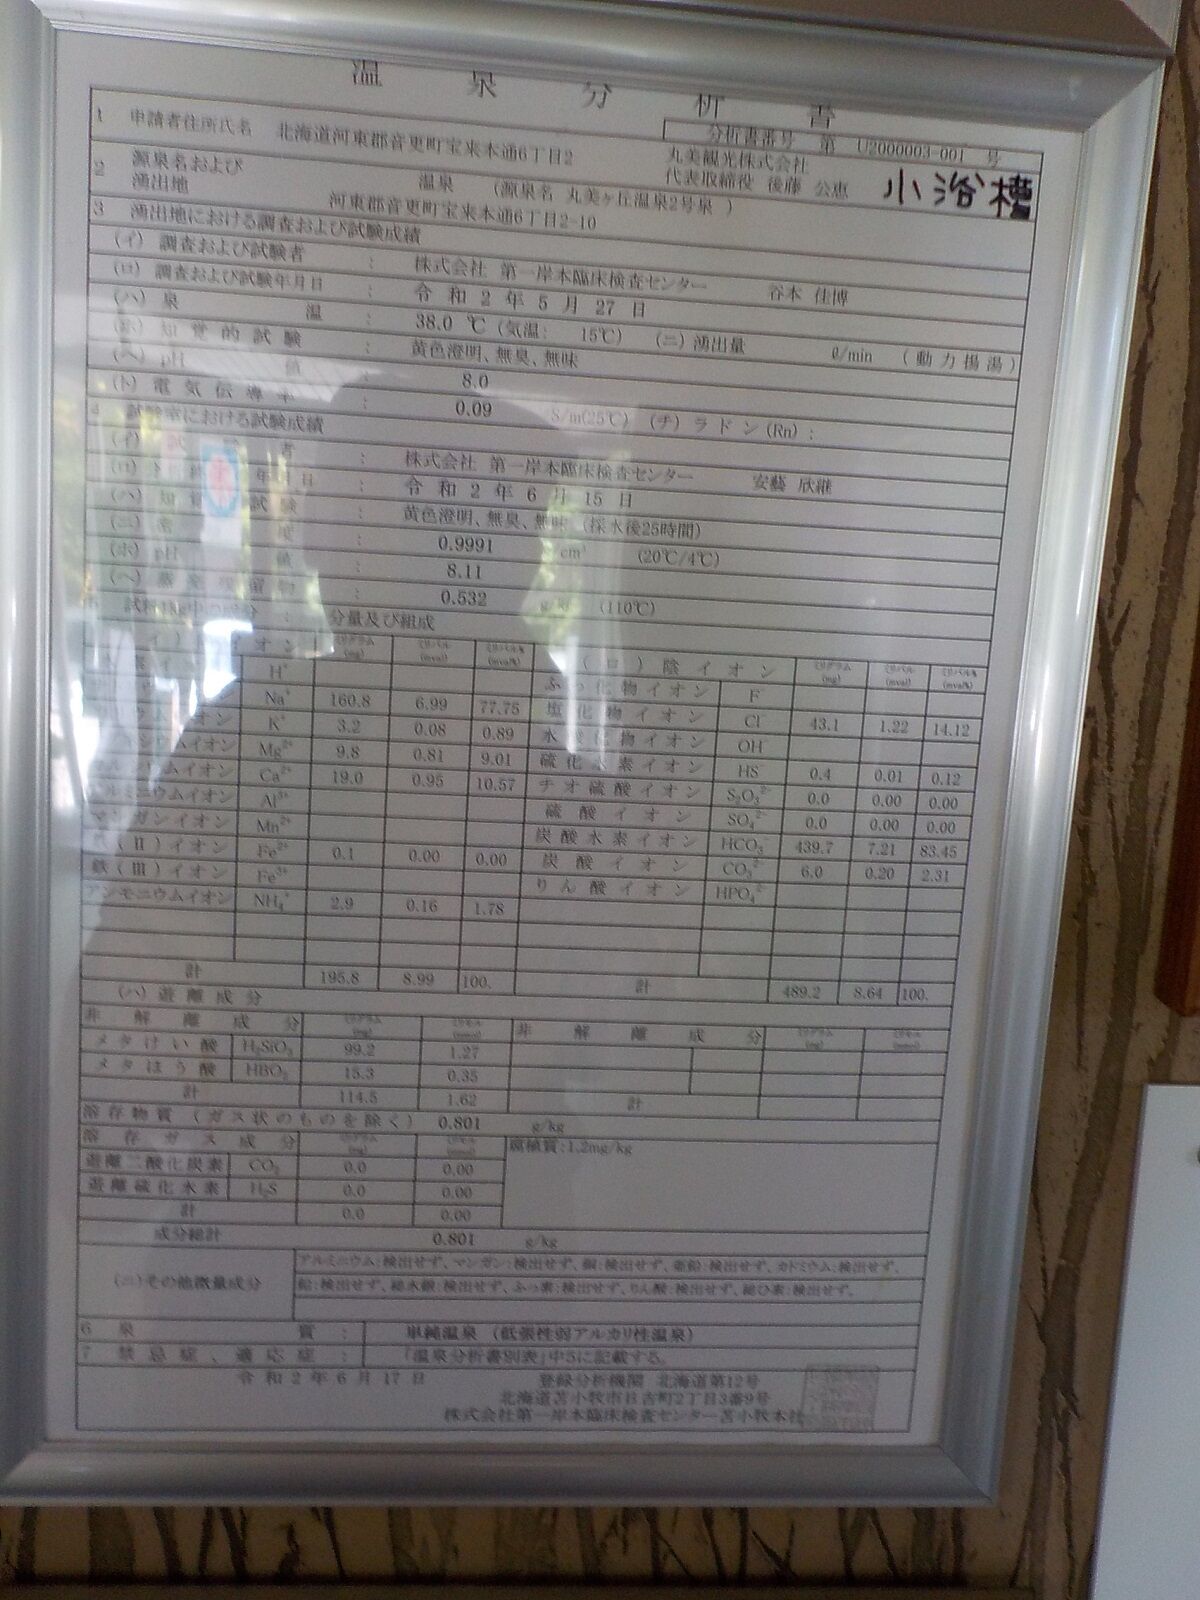 温泉分析書
分析書番号 第 U2000003-001 号
1 申請者住所氏名 北海道河東郡音更町宝来本通6丁目2 丸美観光株式会社
代表取締役 後藤 公恵 小浴槽
2 源泉名および 温泉 (源泉名 丸美ヶ丘温泉2号泉 )
湧出地 河東郡音更町宝来本通6丁目2-10
3 湧出地における調査および試験成績
(イ) 調査および試験者 : 株式会社 第一岸本臨床検査センター 谷本 佳博
(ロ) 調査および試験年月日 : 令和2年5月27日
(ハ) 泉温 : 38.0 ℃ (気温: 15℃) (ニ) 湧出量 ℓ/min (動力揚湯)
(ホ) 知覚的試験 : 黄色澄明、無臭、無味
(ヘ) pH 値 : 8.0
(ト) 電気伝導率 : 0.09 S/m(25℃) (チ) ラドン(Rn) :
4 試験室における試験成績
(イ) 試 者 : 株式会社 第一岸本臨床検査センター 安藝 欣継
(ロ) 年月日 : 令和2年6月15日
(ハ) 知覚 試験 : 黄色澄明、無臭、無味 (採水後25時間)
(ニ) 密度 : 0.9991 cm³ (20℃/4℃)
(ホ) pH 値 : 8.11
(ヘ) 蒸発残留物 : 0.532 g/kg (110℃)
試料1kg中の成分 : 分量及び組成
イオン ミリグラム(mg) ミリバル(mval) ミリバル%(mval%) (ロ) 陰イオン ミリグラム(mg) ミリバル(mval) ミリバル%(mval%)
H⁺ ふっ化物イオン F⁻
Na⁺ 160.8 6.99 77.75 塩化物イオン Cl⁻ 43.1 1.22 14.12
イオン K⁺ 3.2 0.08 0.89 水酸化物イオン OH⁻
イオン Mg²⁺ 9.8 0.81 9.01 硫化水素イオン HS⁻ 0.4 0.01 0.12
イオン Ca²⁺ 19.0 0.95 10.57 チオ硫酸イオン S₂O₃²⁻ 0.0 0.00 0.00
アルミニウムイオン Al³⁺ 硫酸イオン SO₄²⁻ 0.0 0.00 0.00
マンガンイオン Mn²⁺ 炭酸水素イオン HCO₃⁻ 439.7 7.21 83.45
鉄(II)イオン Fe²⁺ 0.1 0.00 0.00 炭酸イオン CO₃²⁻ 6.0 0.20 2.31
鉄(III)イオン Fe³⁺ りん酸イオン HPO₄²⁻
アンモニウムイオン NH₄⁺ 2.9 0.16 1.78
計 195.8 8.99 100. 計 489.2 8.64 100.
(ハ) 遊離成分
非解離成分 ミリグラム(mg) ミリモル(mmol) 非解離成分 ミリグラム(mg) ミリモル(mmol)
メタけい酸 H₂SiO₃ 99.2 1.27
メタほう酸 HBO₂ 15.3 0.35
計 114.5 1.62 計
溶存物質(ガス状のものを除く) 0.801 g/kg
溶存ガス成分 ミリグラム(mg) ミリモル(mmol) 腐植質:1.2mg/kg
遊離二酸化炭素 CO₂ 0.0 0.00
遊離硫化水素 H₂S 0.0 0.00
計 0.0 0.00
成分総計 0.801 g/kg
(ニ)その他微量成分 アルミニウム:検出せず、マンガン:検出せず、銅:検出せず、亜鉛:検出せず、カドミウム:検出せず、
鉛:検出せず、総水銀:検出せず、ふっ素:検出せず、りん酸:検出せず、総ひ素:検出せず。
6 泉質 : 単純温泉 (低張性弱アルカリ性温泉)
7 禁忌症、適応症 : 「温泉分析書別表」中5に記載する。
令和2年6月17日 登録分析機関 北海道第12号
北海道苫小牧市日吉町2丁目3番9号
株式会社第一岸本臨床検査センター苫小牧本社